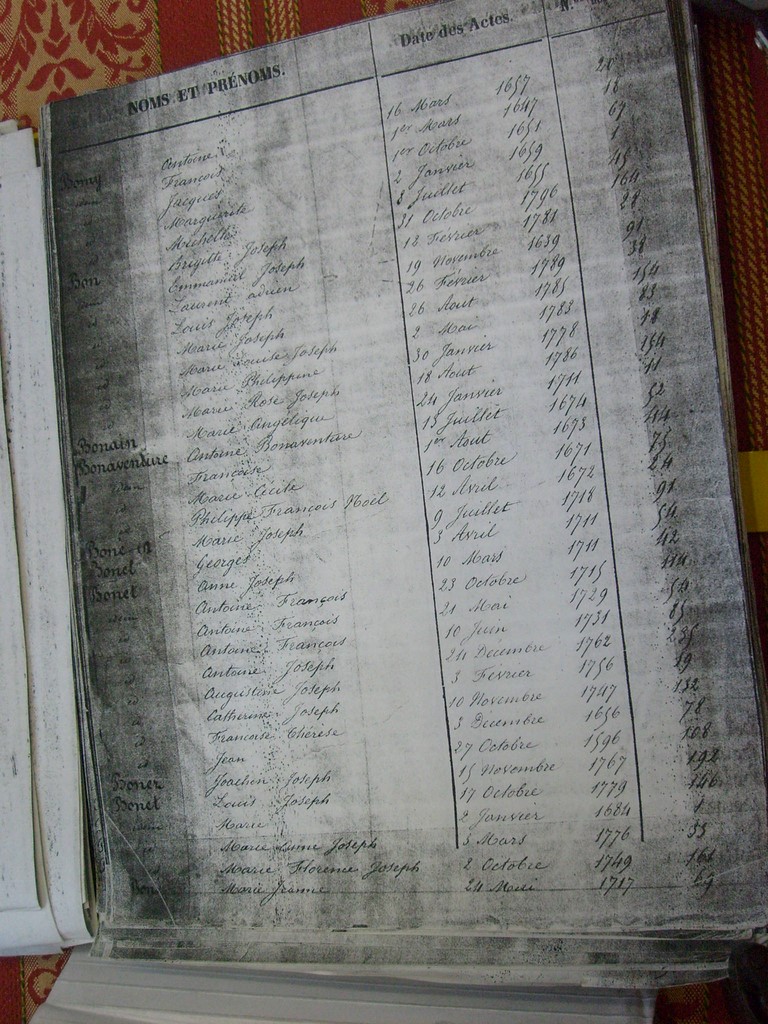 NOMS ET PRÉNOMS. Date des Actes.
Bomy Antoine 16 Mars 1657 20
François 1er Mars 1647 18
Jacques 1er Octobre 1651 67
Marguerite 2 Janvier 1659 1
id Michelle 8 Juillet 1655 45
Bon Brigitte Joseph 31 Octobre 1796 164
Emmanuel Joseph 12 Février 1781 28
id Laurent adrien 19 Novembre 1639 91
id Louis Joseph 26 Février 1789 38
id Marie Joseph 26 Aout 1785 154
id Marie Louise Joseph 2 Mai 1783 83
id Marie Philippine 30 Janvier 1778 18
id Marie Rose Joseph 18 Aout 1786 154
Bonain Marie Angélique 24 Janvier 1711 11
Bonaventure Antoine Bonaventure 13 Juillet 1674 52
Françoise 1er Aout 1673
id Marie Cécile 16 Octobre 1671 75
id Philippe François Noël 12 Avril 1672 24
Marie Joseph 9 Juillet 1718 91
Bonel Georges 3 Avril 1711 54
Bonet Anne Joseph 10 Mars 1711 42
Antoine François 23 Octobre 1715 114
id Antoine François 21 Mai 1729 54
id Antoine François 10 Juin 1731 85
id Antoine Joseph 24 Decembre 1762 235
id Augustine Joseph 3 Février 1756 19
id Catherine Joseph 10 Novembre 1747 132
id Francoise Thérèse 3 Decembre 1656 78
id Jean 27 Octobre 1596 108
Boner Joachin Joseph 15 Novembre 1767 192
Bonet Louis Joseph 17 Octobre 1779 146
Marie 2 Janvier 1684 1
id Marie Anne Joseph 3 Mars 1776 33
Marie Florence Joseph 2 Octobre 1749 161
Marie Jeanne 24 Mai 1717 59